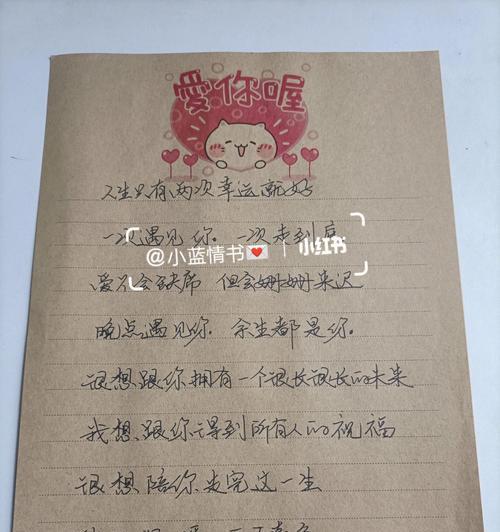 愛你喔
人生只有两次幸运就好
一次遇见你. 一次走到底
@小蓝情书💌 小红书
爱不会缺席 但会姗姗来迟
晚点遇见你. 余生都是你.
很想跟你拥有一个很长很长的未来
我想跟你得到所有人的祝福
很想陪你走完这一生